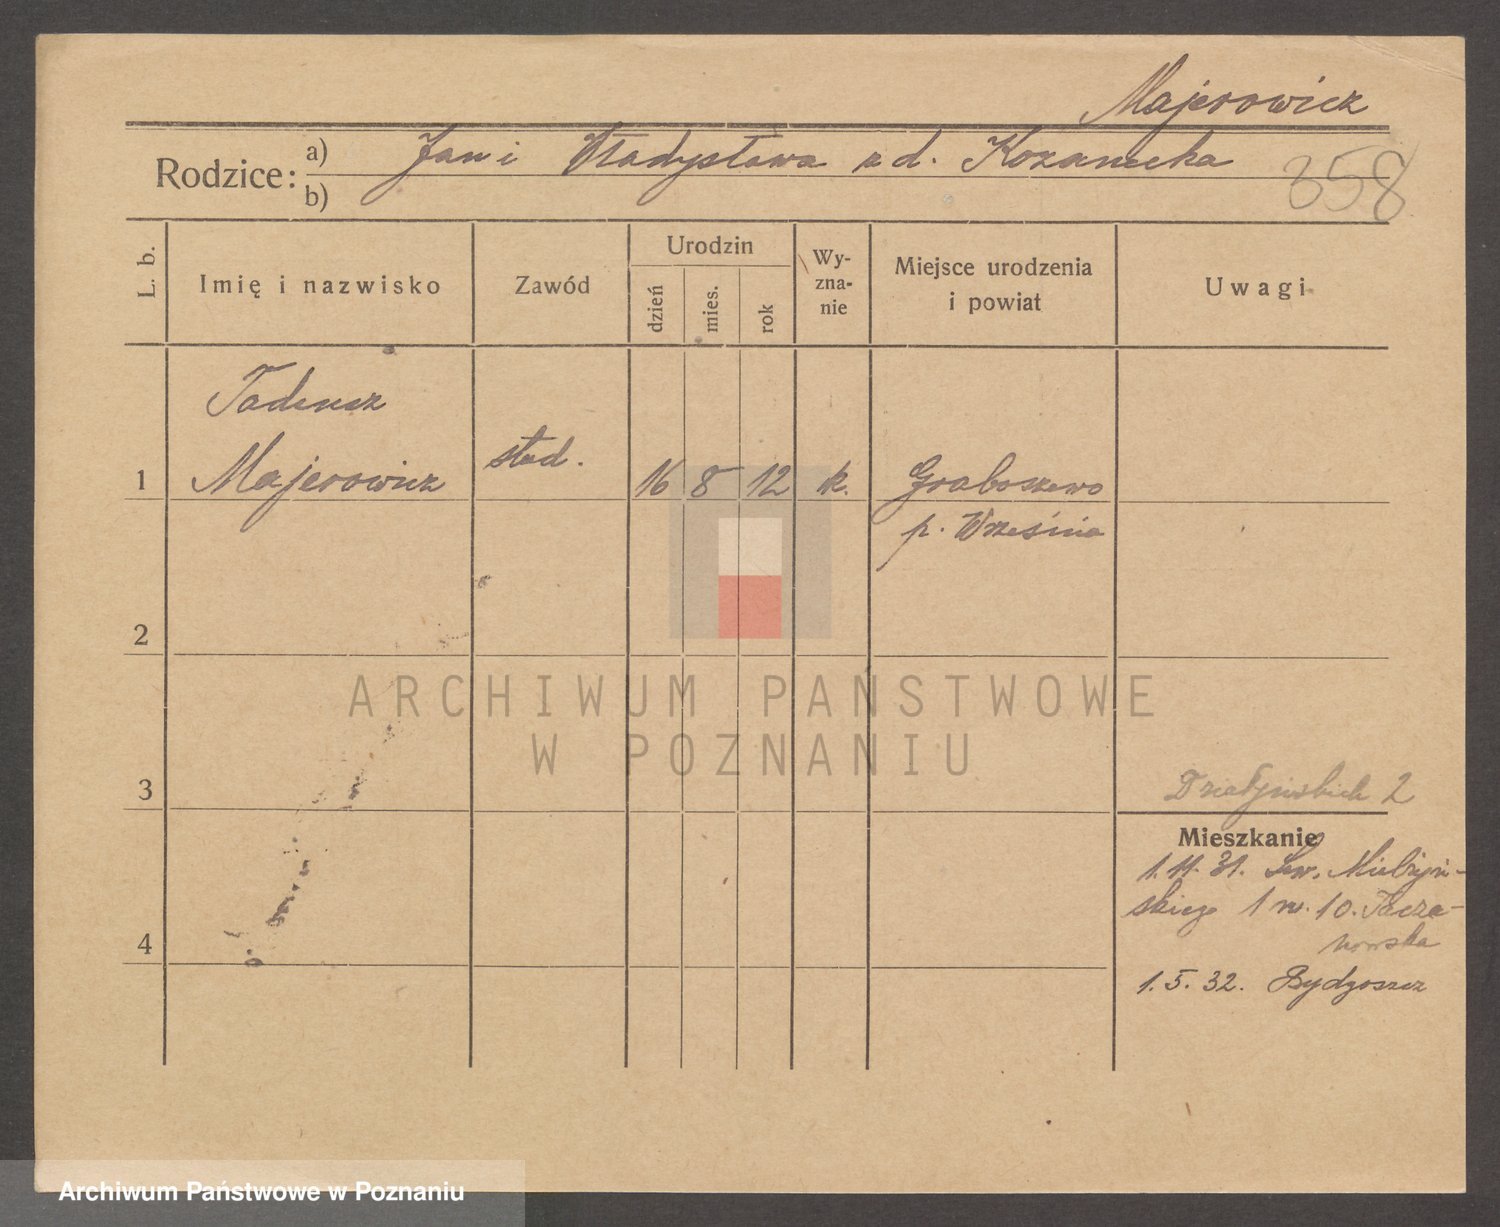 Majerowicz
Rodzice:
a) Jan i Władysława z d. Kozanecka
b)
358
L. b.
Imię i nazwisko
Zawód
Urodzin
dzień
mies.
rok
Wy-
zna-
nie
Miejsce urodzenia
i powiat
Uwagi
Tadeusz
1 Majerowicz stud. 16 8 12 k. Graboszewo
p. Września
2
ARCHIWUM PAŃSTWOWE
W POZNANIU
3
Działyńskich 2
Mieszkanie
1.11.31. Sew. Mielżyń-
skiego 1 m. 10. Tacza-
nowska
4
1.5.32. Bydgoszcz
Archiwum Państwowe w Poznaniu